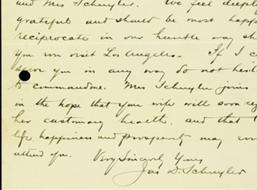 and Mrs Schuyler. We feel deeply
grateful and should be most happy
reciprocate in our humble way sh
you ever visit Los Angeles. If I c
serve you in any way do not hesit
to command me. Mrs Schuyler joins
in the hope that your wife will soon re
her customary health, and that
life happiness and prosperity may ever
attend you. Very Sincerely Yours
Jas D. Schuyler